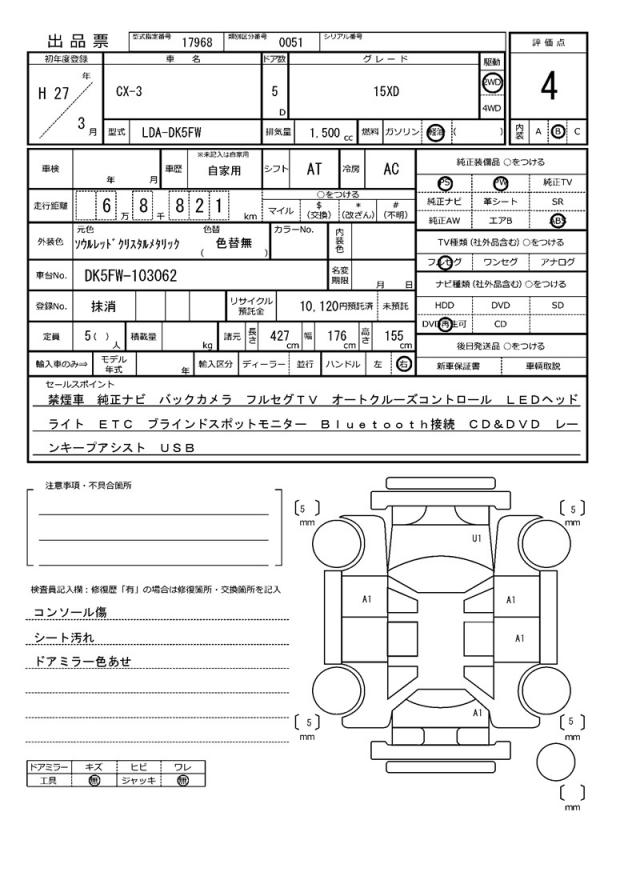 出品票 型式指定番号 17968 類別区分番号 0051 シリアル番号
評価点
4
初年度登録 車名 ドア数 グレード 駆動
H 27 年 3 月 CX-3 5 D 15XD 2WD 4WD
型式 LDA-DK5FW 排気量 1,500 cc 燃料 ガソリン 軽油 ( ) 内装 A B C
車検 年 月 車歴 ※未記入は自家用 自家用 シフト AT 冷房 AC
走行距離 6 万 8 千 8 2 1 km ○をつける マイル $(交換) *(改ざん) #(不明)
外装色 元色 ソウルレッドクリスタルメタリック 色替 ( 色替無 ) カラーNo. 内装色
車台No. DK5FW-103062 名変期限 月 日
登録No. 抹消 リサイクル預託金 10,120円預託済 未預託
定員 5( )人 積載量 kg 諸元 長さ 427 cm 幅 176 cm 高さ 155 cm
輸入車のみ⇒ モデル年式 年 輸入区分 ディーラー 並行 ハンドル 左 右
純正装備品 ○をつける
PS PW 純正TV
純正ナビ 革シート SR
純正AW エアB ABS
TV種類(社外品含む)○をつける
フルセグ ワンセグ アナログ
ナビ種類(社外品含む)○をつける
HDD DVD SD
DVD再生可 CD
後日発送品 ○をつける
新車保証書 車輌取説
セールスポイント
禁煙車 純正ナビ バックカメラ フルセグTV オートクルーズコントロール LEDヘッド
ライト ETC ブラインドスポットモニター Bluetooth接続 CD&DVD レー
ンキープアシスト USB
注意事項・不具合箇所
検査員記入欄：修復歴「有」の場合は修復箇所・交換箇所を記入
コンソール傷
シート汚れ
ドアミラー色あせ
ドアミラー キズ ヒビ ワレ
工具 無 ジャッキ 無
[ 5 ] mm [ 5 ] mm
U1
A1 A1
A1
A1
[ 5 ] mm [ 5 ] mm
[ ] mm